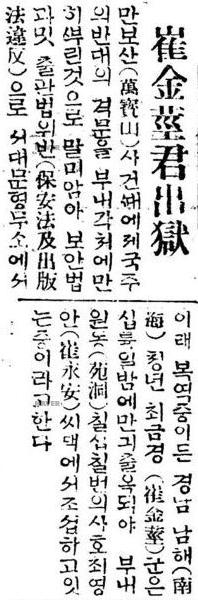 崔金莖君出獄
만보산(萬寶山)사건때에제국주
의반대의격문을부내각처에만
히뿌린것으로말미암아보안법
과밋출판법위반(保安法及出版
法違反)으로서대문형무소에서
이래복역중이든경남남해(南
海)청년최금경(崔金莖)군은
십륙일밤에만긔출옥되야부내
원동(苑洞)칠십칠번의사호최영
안(崔永安)씨댁에서조섭하고잇
는중이라한다